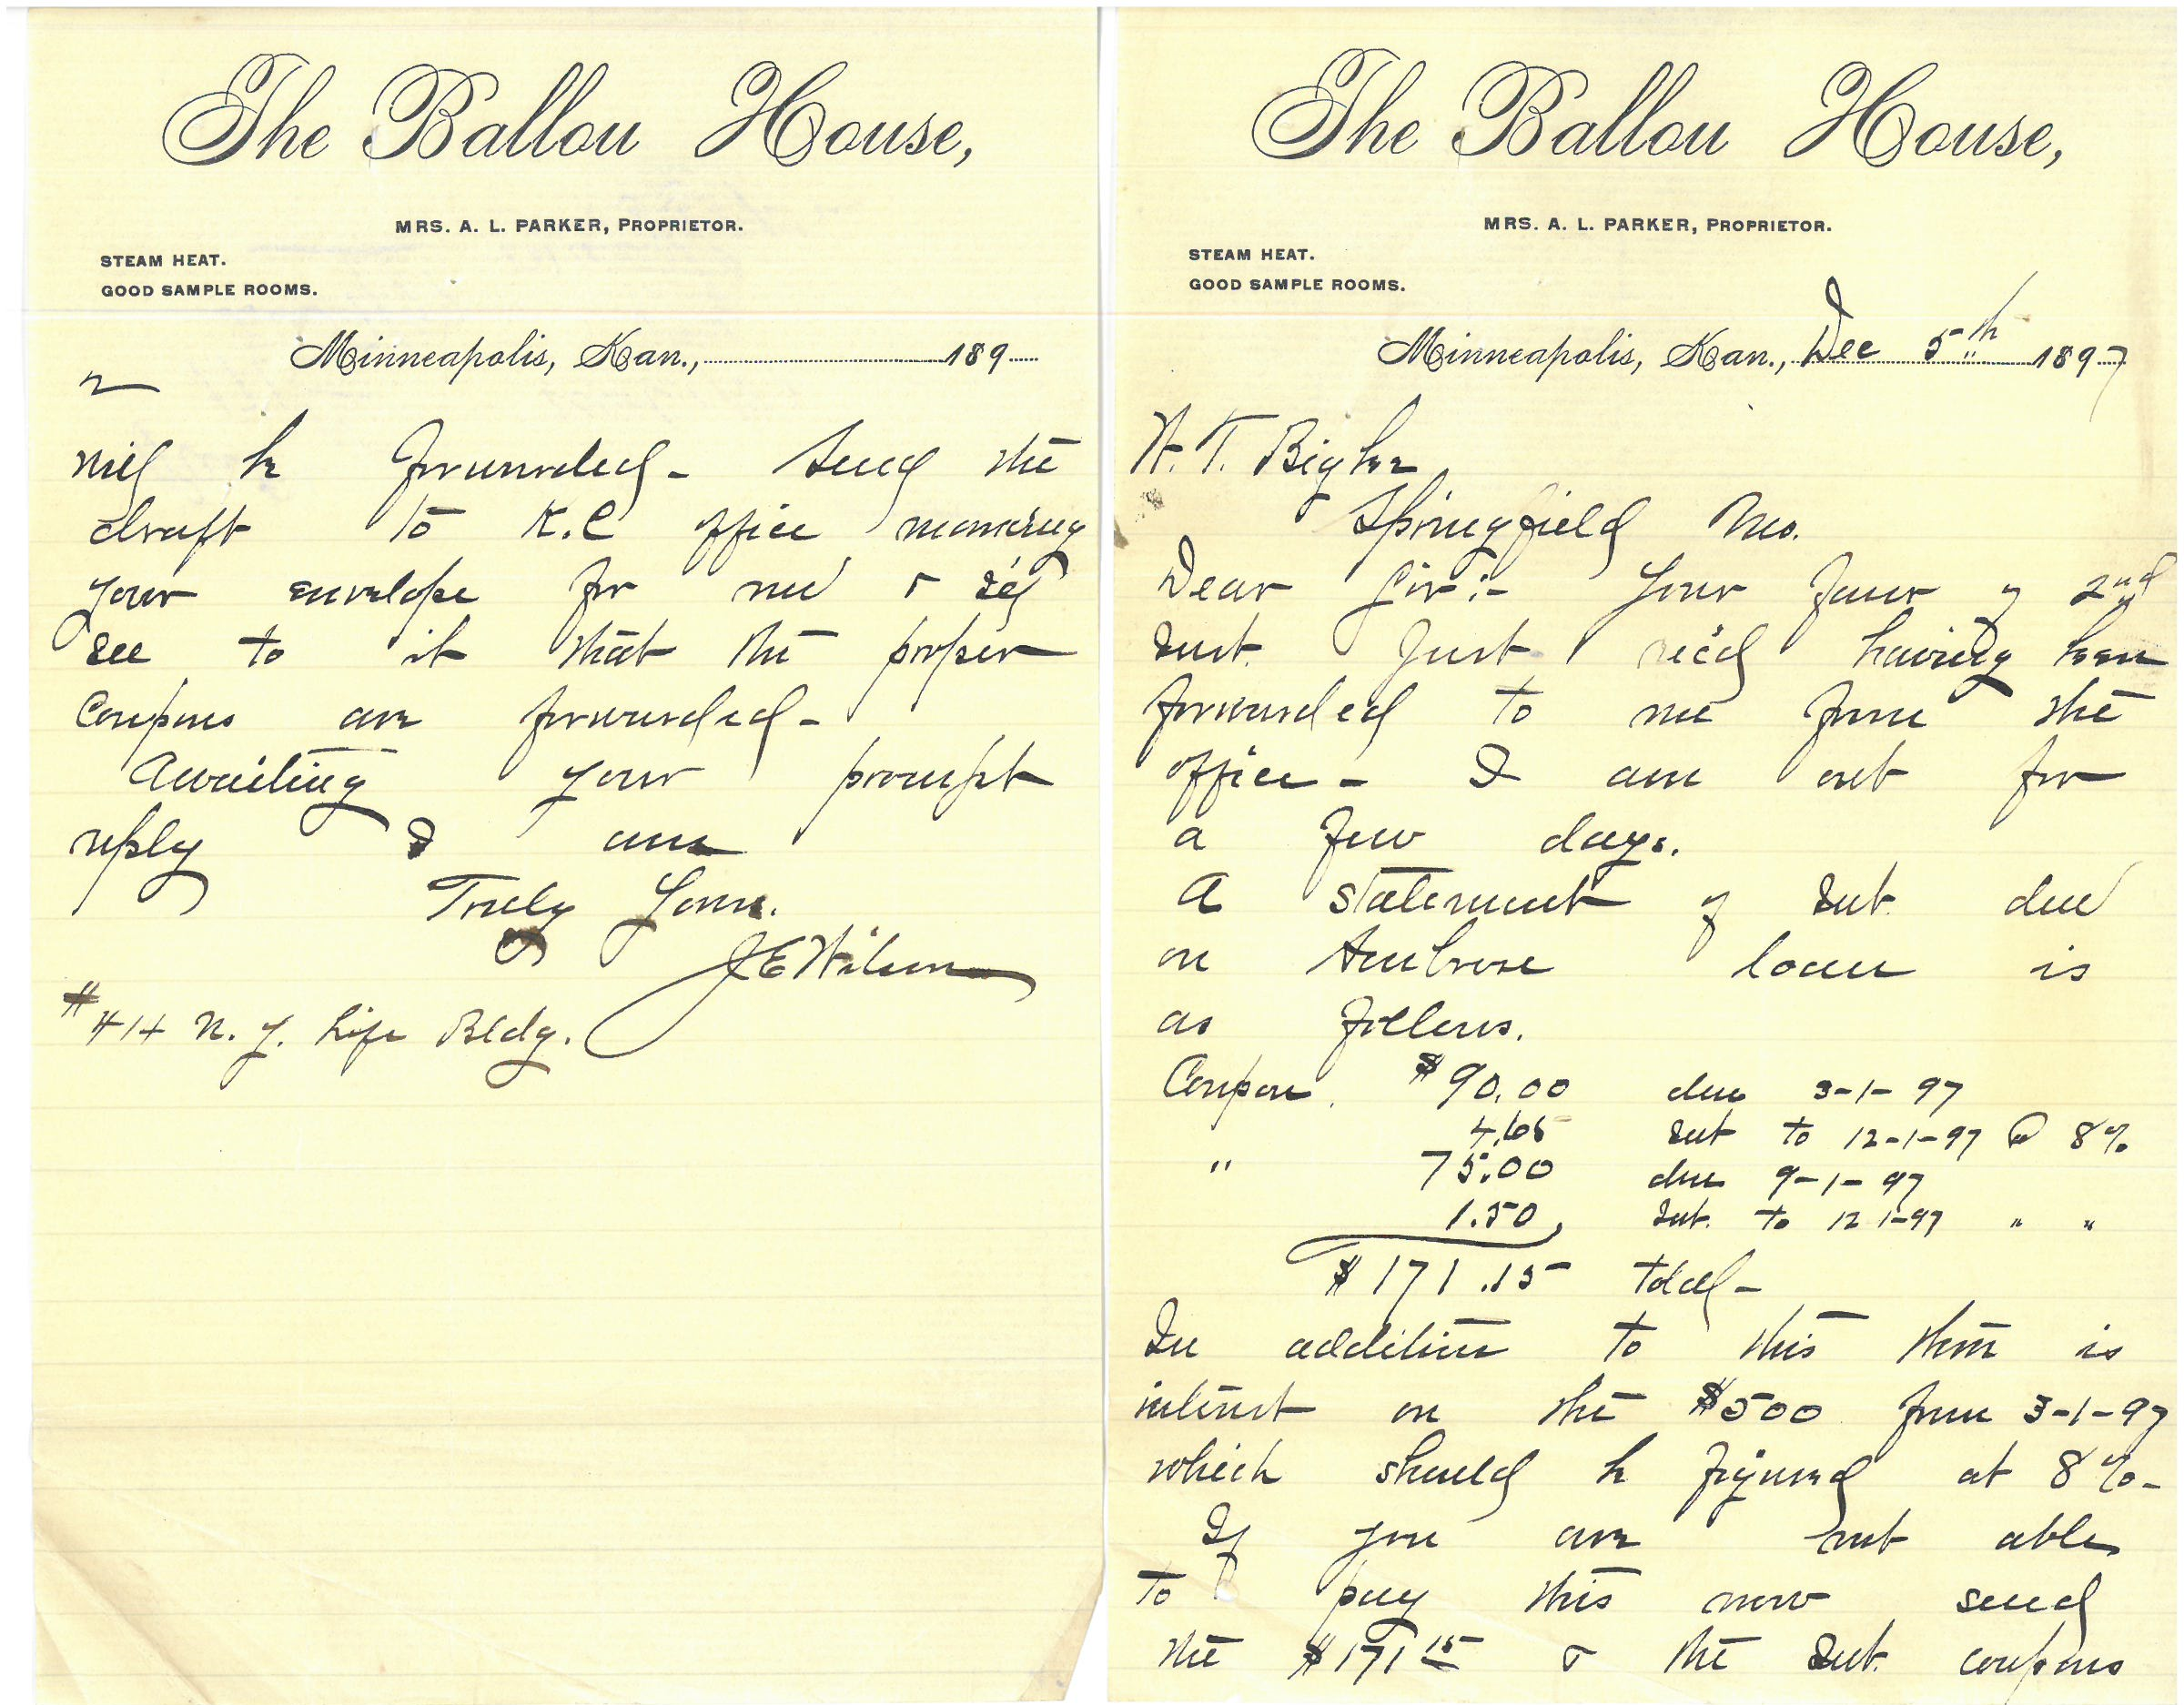 The Ballou House,
MRS. A. L. PARKER, PROPRIETOR.
STEAM HEAT.
GOOD SAMPLE ROOMS.
Minneapolis, Kan., Dec 5th 1897
Springfield Mo.
Dear Sir:- Your favor of 2nd
Inst. Just rec'd having been
forwarded to me from the
office - I am out for
a few days.
A statement of Int. due
on Ambrose loan is
as follows.
Coupon. $90.00 due 3-1-97
4.65 Int to 12-1-97 @ 8%
" 75.00 due 9-1-97
1.50, Int. to 12 1-97 " "
$171.15 total -
In addition to this there is
interest on the $500 from 3-1-97
which should be figured at 8% -
If you are not able
to pay this now send
the $171 15 & the Int. coupons
The Ballou House,
MRS. A. L. PARKER, PROPRIETOR.
STEAM HEAT.
GOOD SAMPLE ROOMS.
Minneapolis, Kan., 189
2
will be forwarded - Send the
draft to K.C office marking
your envelope for me & I'll
see to it that the proper
Coupons are forwarded -
Awaiting your prompt
reply I am
Truly Yours.
J E Wilson
#414 N. Y. Life Bldg.